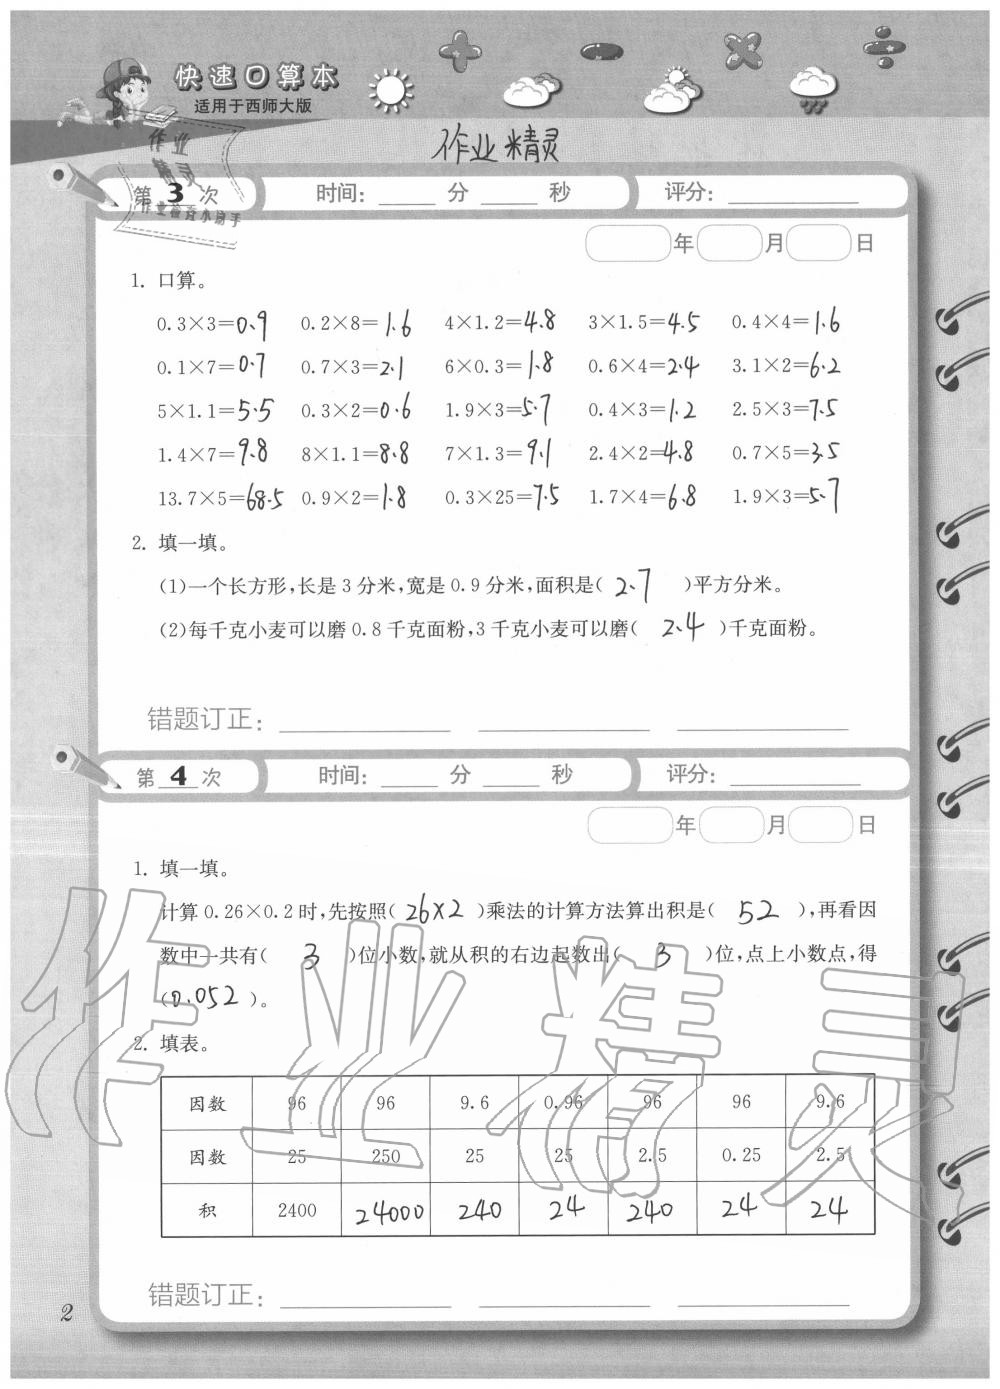 快速口算本
适用于西师大版
作业精灵
作业
精灵
作业检查小助手
第 3 次 时间: 分 秒 评分:
年 月 日
1. 口算。
0.3×3=0.9 0.2×8=1.6 4×1.2=4.8 3×1.5=4.5 0.4×4=1.6
0.1×7=0.7 0.7×3=2.1 6×0.3=1.8 0.6×4=2.4 3.1×2=6.2
5×1.1=5.5 0.3×2=0.6 1.9×3=5.7 0.4×3=1.2 2.5×3=7.5
1.4×7=9.8 8×1.1=8.8 7×1.3=9.1 2.4×2=4.8 0.7×5=3.5
13.7×5=68.5 0.9×2=1.8 0.3×25=7.5 1.7×4=6.8 1.9×3=5.7
2. 填一填。
(1)一个长方形,长是3分米,宽是0.9分米,面积是( 2.7 )平方分米。
(2)每千克小麦可以磨0.8千克面粉,3千克小麦可以磨( 2.4 )千克面粉。
错题订正:
第 4 次 时间: 分 秒 评分:
年 月 日
1. 填一填。
计算0.26×0.2时,先按照( 26×2 )乘法的计算方法算出积是( 52 ),再看因
数中一共有( 3 )位小数,就从积的右边起数出( 3 )位,点上小数点,得
(0.052)。
2. 填表。
因数 96 96 9.6 0.96 96 96 9.6
因数 25 250 25 25 2.5 0.25 2.5
积 2400 24000 240 24 240 24 24
错题订正:
2
作业精灵